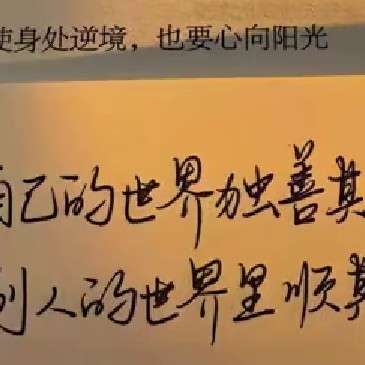 使身处逆境，也要心向阳光
自己的世界独善其
别人的世界里顺其